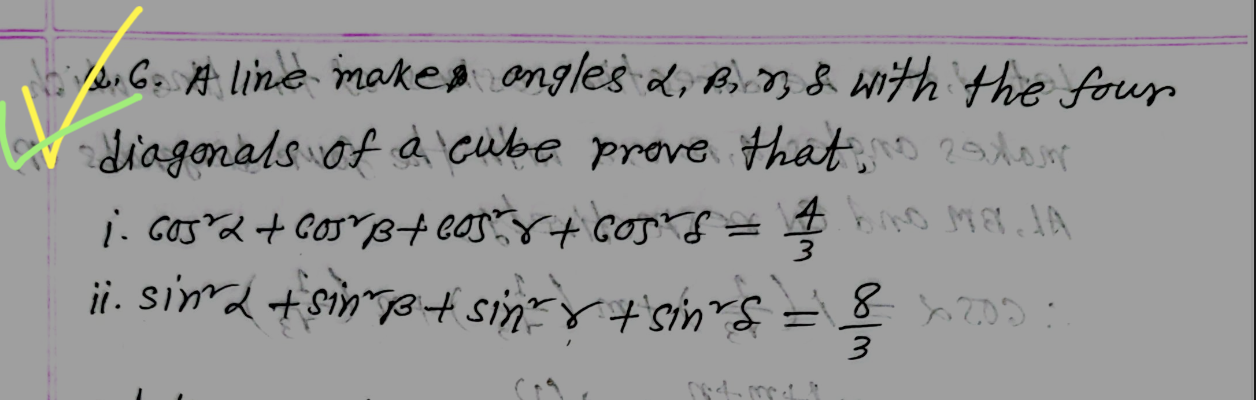 Q.6. A line makes angles α, β, γ, δ with the four
diagonals of a cube prove that,
i. cos²α + cos²β + cos²γ + cos²δ = 4/3
ii. sin²α + sin²β + sin²γ + sin²δ = 8/3